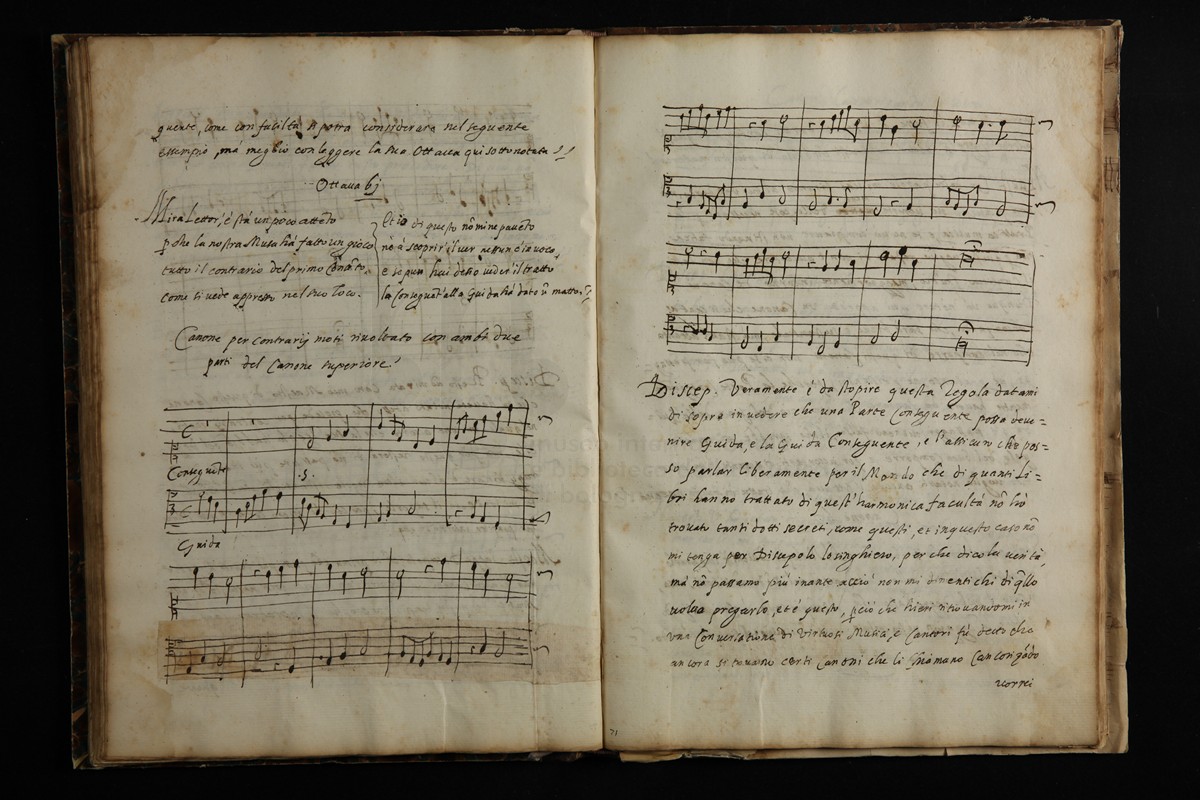 guente, come con facilità si potra considerare nel seguente
essempio, má meglio con leggere la sua Ottava qui sotto notata
Ottava 6j
Mira Lettor, e stá un poco attento
p che la nostra Musa há fatto un gioco
tutto il contrario del primo
come si vede appresso nel suo loco.
Et io di questo nome pavento
né à scoprir il ver nessun
e se pur vuoi veder il tratto
la Conseguẽt' alla Guida há dato matto.
Canone per contrarij moti rivoltato con ambi due
parti del Canone superiore
Conseguẽte
.5.
Guida
Discep. Veramente é da stopire questa Regola datami
di sopra in vedere che una Parte Conseguente possa deve=
nire Guida, e la Guida Conseguente, e l'assicuro che pos=
so parlar liberamente per il Mondo che di quanti Li=
bri hanno trattato di quest' harmonica facultá nõ hó
trovato tanti dotti secreti, come questi, et in questo caso nõ
mi tenga per Disepolo losinghiero, per che dico la verità,
má nõ passamo piú inante acciò non mi dimentichi di qllo
voleva pregarlo, et é questo, pció che hieri ritrovandomi in
una Conversatione di Virtuosi Musici, e Cantori fú detto che
ancora si trovano certi canoni che li chiamano Cancrizãdo
vorrei
71